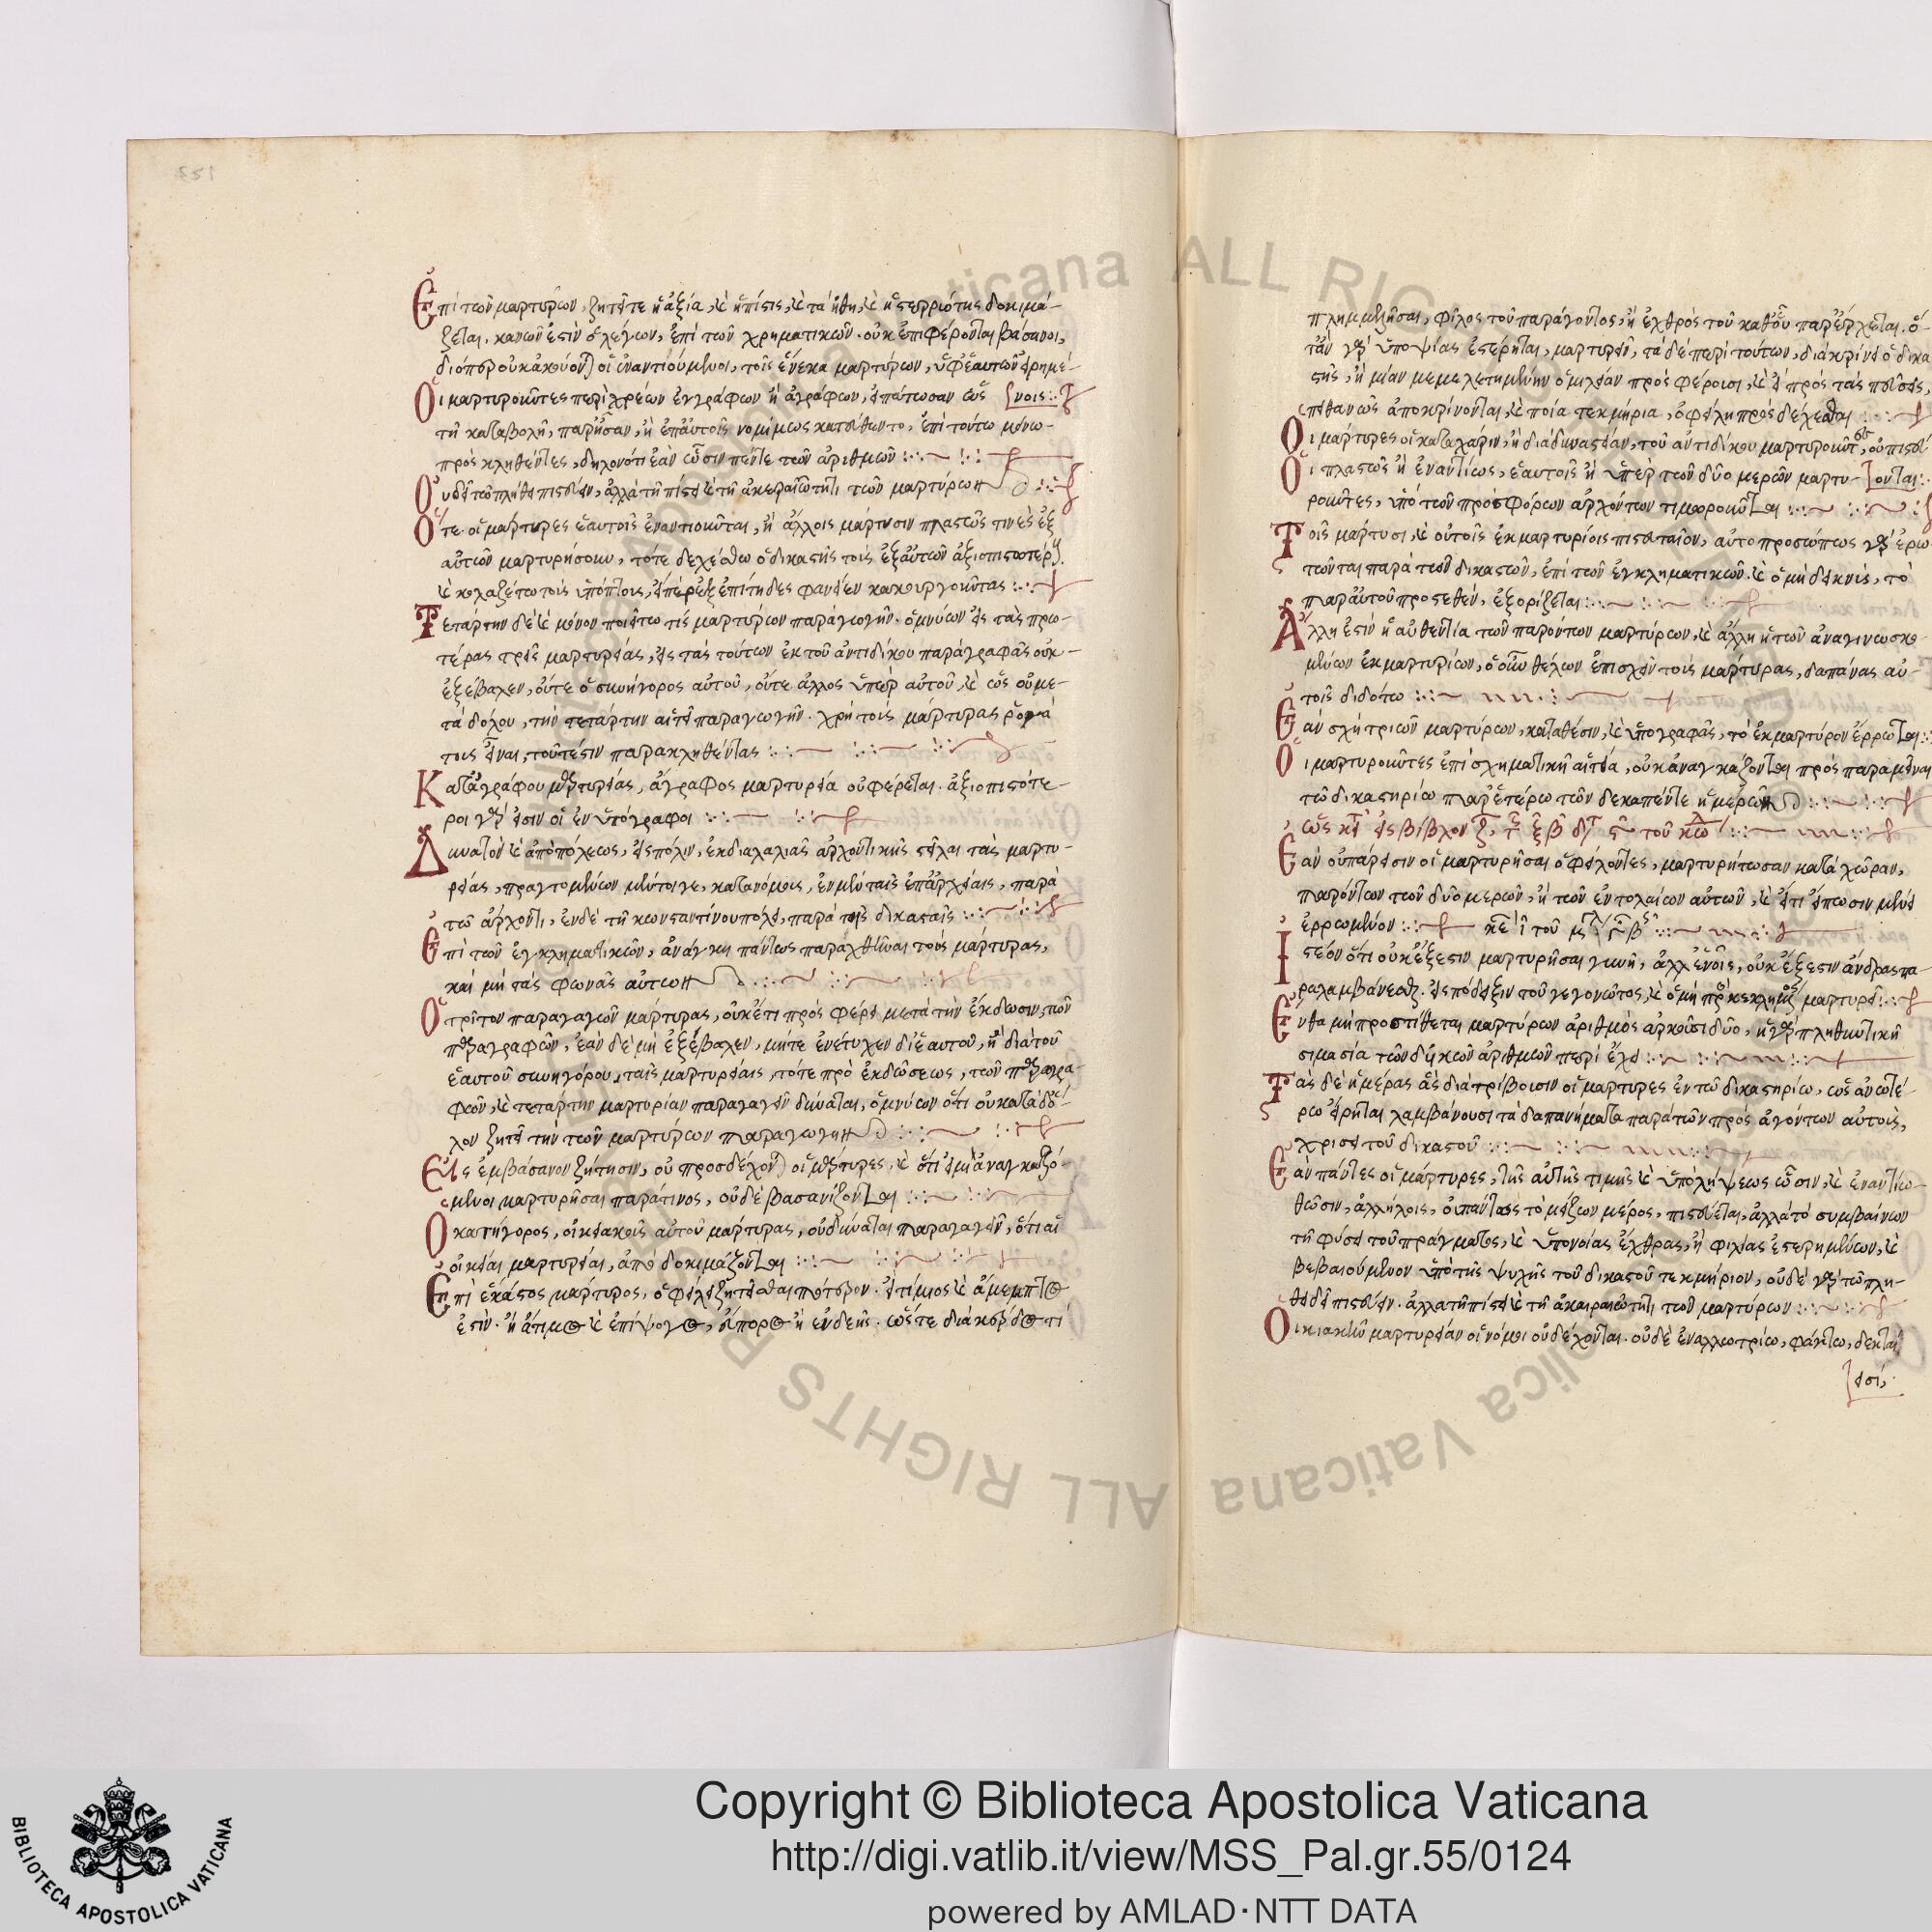 Ἐπὶ τῶν μαρτύρων, ζητεῖτε ἡ ἀξία, καὶ ἡ πίστις, καὶ τὰ ἤθη, καὶ ἡ στερριότης δοκιμά-
ζεται. κανὼν ἐστὶν ὁ λέγων, ἐπὶ τῶν χρηματικῶν. οὐκ ἐπιφέρονται βάσανοι,
Οἱ μαρτυροῦντες περὶ χρέων ἐγγράφων ἢ ἀγράφων, εἰπάτωσαν ὡς
τῇ καταβολῇ, παρῆσαν, ἢ ἐπ' αὐτοῖς νομίμως κατέθεντο, ἐπὶ τούτω μόνω
προσκληθέντες, δηλονότι ἐὰν ὦσιν πέντε τῶν ἀριθμῶν
Οὐ δεῖ τῶ πλήθει πιστεύειν, ἀλλὰ τῇ πίστει καὶ τῇ ἀκεραιότητι τῶν μαρτύρων
Ὅτε οἱ μάρτυρες ἑαυτοῖς ἐναντιοῦνται, ἢ ἄλλοις μάρτυσιν πλαστῶς τινὲς ἐξ
αὐτῶν μαρτυρήσουν, τότε δεχέσθω ὁ δικαστὴς τοὺς ἐξ αὐτῶν ἀξιοπιστοτέρους.
καὶ κολαζέτω τοὺς ὑπόπτους, εἴπερ ἐξεπίτηδες φανεῖεν κακουργοῦντας
Τετάρτην δὲ καὶ μόνον ποιείτω τις μαρτύρων παραγωγὴν. ὀμνύων εἰς τὰς πρω-
τέρας τρεῖς μαρτυρείας, εἰς τὰς τούτων ἐκ τοῦ ἀντιδίκου παραγραφὰς οὐκ
ἐξέβαλεν, οὔτε ὁ συνήγορος αὐτοῦ, οὔτε ἄλλος ὑπὲρ αὐτοῦ, καὶ ὡς οὐ με-
τὰ δόλου, τὴν τετάρτην αἰτεῖ παραγωγὴν. χρὴ τοὺς μάρτυρας ῥογά
τους εἶναι, τουτέστιν παρακληθέντας
Κατὰ ἐγγράφου μαρτυρείας, ἄγραφος μαρτυρεία οὐ φέρεται. ἀξιοπιστότε-
ροι γάρ εἰσιν οἱ ἐνυπόγραφοι
Δυνατὸν καὶ ἀπὸ πόλεως, εἰς πόλιν, ἐκ διαλαλιᾶς ἀρχοντικῆς στεῖλαι τὰς μαρτυ-
ρείας, πραγτομένων μέντοιγε, κατὰ νόμους, ἐν μὲν ταῖς ἐπαρχείαις, παρὰ
τῶ ἄρχοντι, ἐν δὲ τῇ κωνσταντίνου πόλει, παρὰ τοῖς δικασταῖς
Ἐπὶ τῶν ἐγκληματικῶν, ἀνάγκη πάντως παραχθῆναι τοὺς μάρτυρας,
καὶ μὴ τὰς φωνὰς αὐτῶν
Ὁ τρίτον παραγαγὼν μάρτυρας, οὐκέτι προσφέρει μετὰ τὴν ἔκδωσιν, τῶν
παραγραφῶν, ἐὰν δὲ μὴ ἐξέβαλεν, μήτε ἐνέτυχεν δι' ἑαυτοῦ, ἢ διὰ τοῦ
ἑαυτοῦ συνηγόρου, ταῖς μαρτυρείαις, τότε πρὸ ἐκδώσεως, τῶν παραγρα-
φῶν, καὶ τετάρτην μαρτυρίαν παραγαγεῖν δύναται, ὀμνύων ὅτι οὐ κατὰ δό-
λον ζητεῖ τὴν τῶν μαρτύρων παραγωγήν
Εἰς ἐμβάσανον ζήτησιν, οὐ προσδέχονται οἱ μάρτυρες, καὶ ὅτι εἰ μὴ ἀναγκαζό-
μενοι μαρτυρῆσαι παρά τινος, οὐδὲ βασανίζονται
Ὁ κατήγορος, οἰκειακοὺς αὐτοῦ μάρτυρας, οὐ δύναται παραγαγεῖν, ὅτι αἱ
οἰκεῖαι μαρτυρεῖαι, ἀποδοκιμάζονται
Ἐπὶ ἑκάστος μάρτυρος, ὀφείλει ζητεῖσθαι πότερον. εἰ τίμιος καὶ ἄμεμπτος
ἐστὶν. ἢ ἄτιμος καὶ ἐπίψογος, εὔπορος ἢ ἐνδεὴς. ὥστε διὰ κέρδος τι
πλημμελῆσαι, φίλος τοῦ παράγοντος, ἢ ἐχθρὸς τοῦ καθ' οὗ παρέρχεται. ὁ-
τὰν γὰρ ὑποψίας ἐστέρηται, μαρτυρεῖν, τὰ δὲ περὶ τούτων, διακρίνει ὁ δικα
στὴς, ἢ μίαν μεμελετημένην ὁμιλείαν προσφέρουσι, καὶ εἰ πρὸς τὰς πεύσεις,
πιθανῶς ἀποκρίνονται, καὶ ποῖα τεκμήρια, ὀφείλῃ προσδέχεσθαι
Οἱ μάρτυρες οἱ κατὰ χάριν, ἢ διὰ δυναστείαν, τοῦ ἀντιδίκου μαρτυροῦντες, οὐ πιστεύ
Οἱ πλαστῶς ἢ ἐναντίως, ἑαυτοῖς ἢ ὑπὲρ τῶν δύο μερῶν μαρτυ- ονται
ροῦντες, ὑπὸ τῶν προσφόρων ἀρχόντων τιμωροῦνται
Τοῖς μάρτυσι, καὶ οὐ τοῖς ἐκμαρτυρίοις πιστευταῖον, αὐτοπροσώπως γὰρ ἐρω
τῶνται παρὰ τῶν δικαστῶν, ἐπὶ τῶν ἐγκληματικῶν. καὶ ὁ μὴ δεικνὺς, τὸ
παρ' αὐτοῦ προστεθὲν, ἐξορίζεται
Ἄλλη ἐστὶν ἡ αὐθεντία τῶν παρόντων μαρτύρων, καὶ ἄλλη ἡ τῶν ἀναγινωσκο
μένων ἐκμαρτυρίων, ὁ οὖν θέλων ἐπισχεῖν τοὺς μάρτυρας, δαπάνας αὐ-
τοῖς διδότω
Ἐὰν σχῇ τριῶν μαρτύρων, κατάθεσιν, καὶ ὑπογραφὰς, τὸ ἐκμαρτύρον ἔρρωται
Οἱ μαρτυροῦντες ἐπὶ σχηματικῇ αἰτεία, οὐκ ἀναγκάζονται προσπαραμεῖναι
τῶ δικαστηρίω παρ' ἑτέρω τῶν δεκαπέντε ἡμερῶν
Ἐὰν οὐ πάρεισιν οἱ μαρτυρῆσαι ὀφείλοντες, μαρτυρήτωσαν κατὰ χῶραν,
παρόντων τῶν δύο μερῶν, ἢ τῶν ἐντολαίων αὐτῶν, καὶ ἔτι εἴπωσιν μένει
ἐρρωμένον
Ἰστέον ὅτι οὐκ ἔξεστιν μαρτυρῆσαι γυνῇ, ἀλλ' ἐν οἷς, οὐκ ἔξεστιν ἄνδρας πα-
ραλαμβάνεσθαι. εἰς πόδειξιν τοῦ γεγονότος, καὶ ὁ μὴ προσκεκλημένος μαρτυρεῖ
Ἔνθα μὴ προστίθεται μαρτύρων ἀριθμὸς ἀρκοῦσι δύο, ἡ γὰρ πληθυντικὴ
σιμασία
Τὰς δὲ ἡμέρας ἃς διατρίβουσιν οἱ μάρτυρες ἐν τῶ δικαστηρίω, ὡς ἀνωτέ-
ρω εἴρηται λαμβάνουσι τὰ δαπανήματα παρὰ τῶν προσαγόντων αὐτοὺς,
χρίσει τοῦ δικαστοῦ
Ἐὰν πάντες οἱ μάρτυρες, τῆς αὐτῆς τιμῆς καὶ ὑπολήψεως ὦσιν, καὶ ἐναντίω-
θῶσιν, ἀλλήλοις, οὐ πάντως τὸ μεῖζων μέρος, πιστεύεται, ἀλλὰ τὸ συμβαίνων
τῇ φύσει τοῦ πράγματος, καὶ ὑπονοίας ἔχθρας, ἢ φιλίας ἐστερημένων, καὶ
βεβαιούμενον ὑπὸ τῆς ψυχῆς τοῦ δικαστοῦ τεκμήριον, οὐδὲ γὰρ τῶ πλή-
θει δεῖ πιστεύειν. ἀλλὰ τῇ πίστει καὶ τῇ ἀκαιραιότητι τῶν μαρτύρων
Οἰκιακὴν μαρτυρείαν οἱ νόμοι οὐ δέχονται. οὐδὲ ἐν ἀλλωτρίω
εἰσί,
ALL RIGHTS
Copyright © Biblioteca Apostolica Vaticana
http://digi.vatlib.it/view/MSS_Pal.gr.55/0124
powered by AMLAD·NTT DATA
BIBLIOTECA APOSTOLICA VATICANA